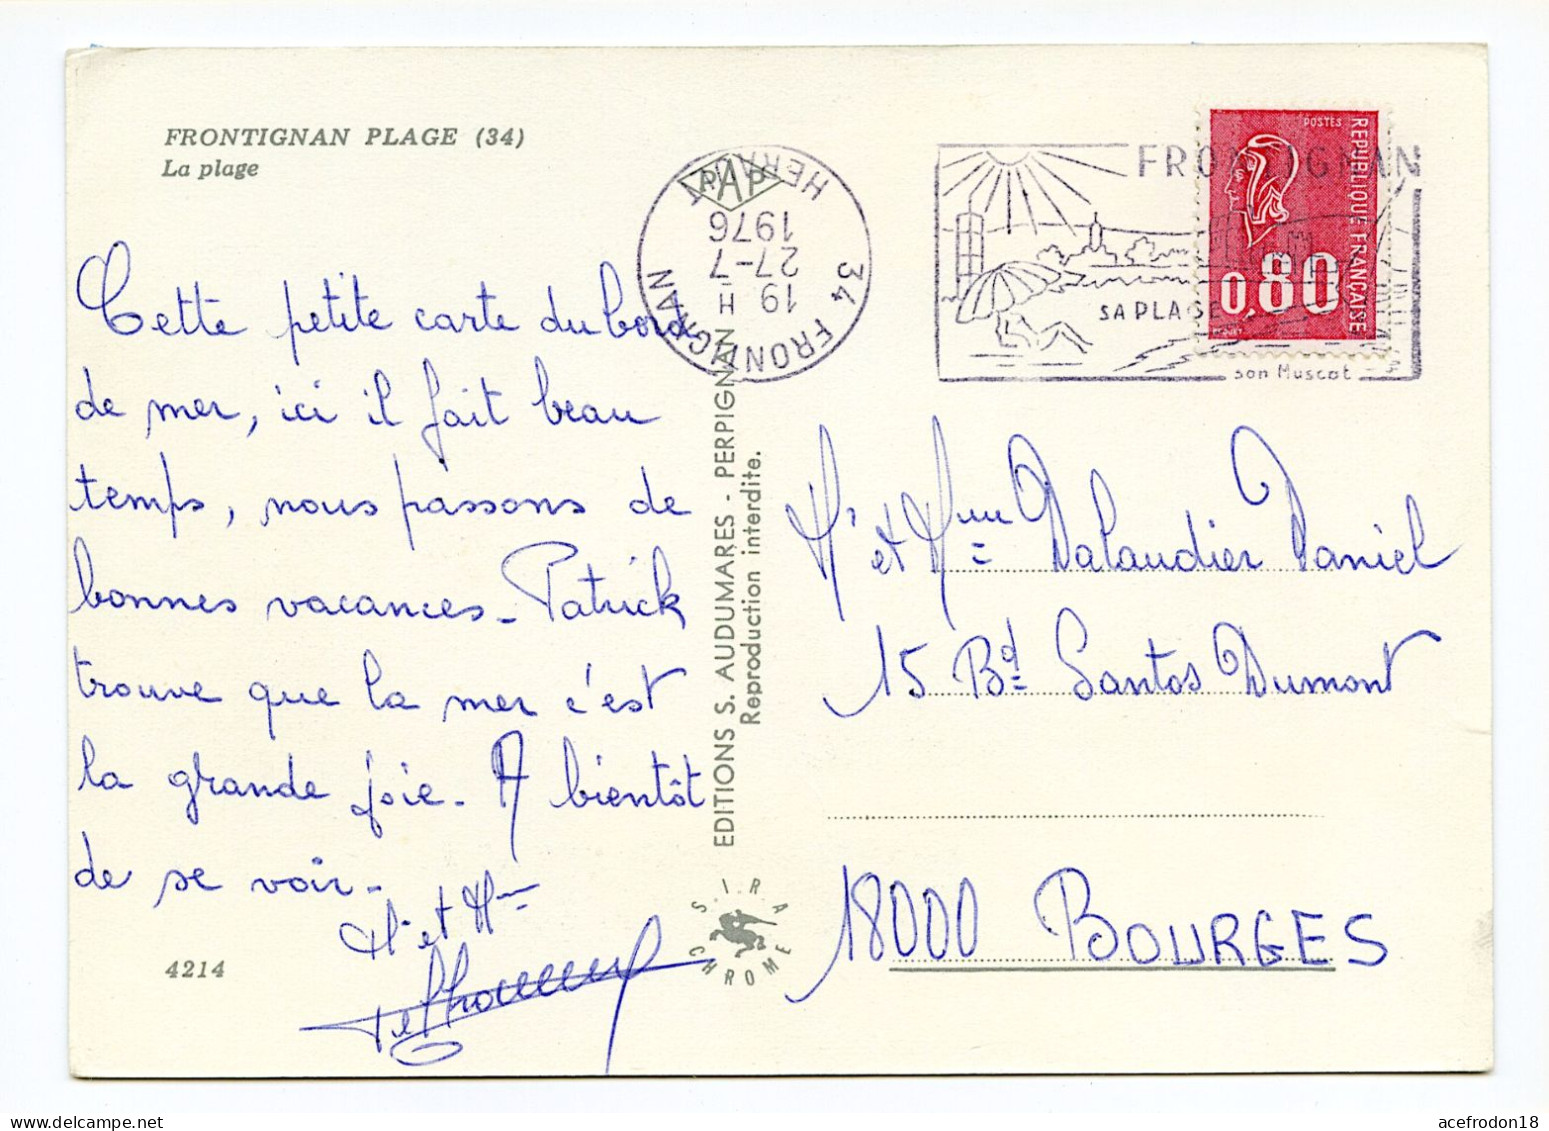 FRONTIGNAN PLAGE (34)
La plage
Cette petite carte du bord
de mer, ici il fait beau
temps, nous passons de
bonnes vacances - Patrick
trouve que la mer c'est
la grande joie. A bientôt
de se voir -
Mr et Mme
4214
EDITIONS S. AUDUMARES - PERPIGNAN
Reproduction interdite.
S.I.R.A
CHROME
PAP
34 FRONTIGNAN
HERAULT
19 H
27-7
1976
FRONTIGNAN
SA PLAGE
son Muscat
POSTES
REPUBLIQUE FRANÇAISE
0,80
Mr et Mme Dalaudier Daniel
15 Bd Santos Dumont
18000 BOURGES
acefrodon18